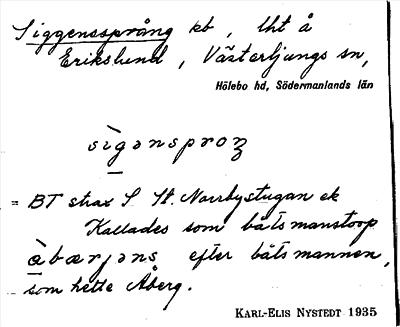 Siggenssprång kb, lht å
Erikslund, Västerljungs sn,
Hölebo hd, Södermanlands län
sìgənsproŋ
= BT strax S. St. Norrbystugan ek
Kallades som båtsmanstorp
àbærjəns efter båtsmannen,
som hette Åberg.
KARL-ELIS NYSTEDT 1935